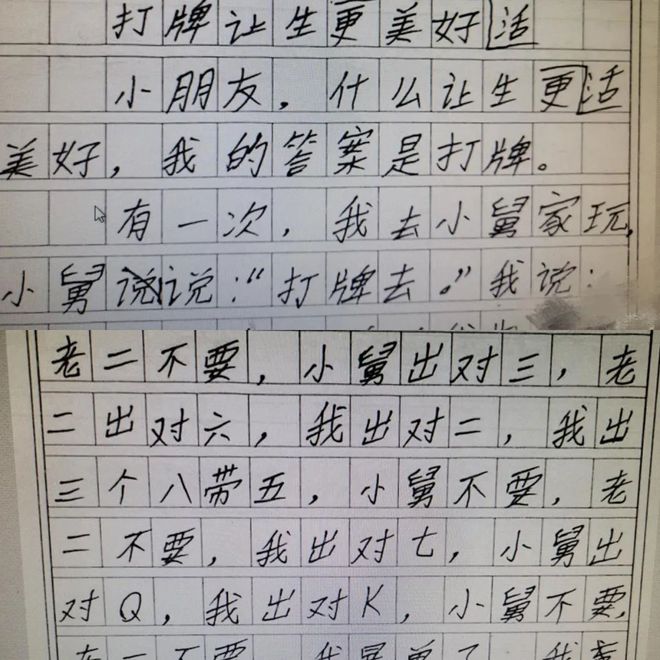 打牌让生更美好活
小朋友，什么让生更活
美好，我的答案是打牌。
有一次，我去小舅家玩，
小舅说说：“打牌去。”我说：
老二不要，小舅出对三，老
二出对六，我出对二，我出
三个八带五，小舅不要，老
二不要，我出对七，小舅出
对Q，我出对K，小舅不要，